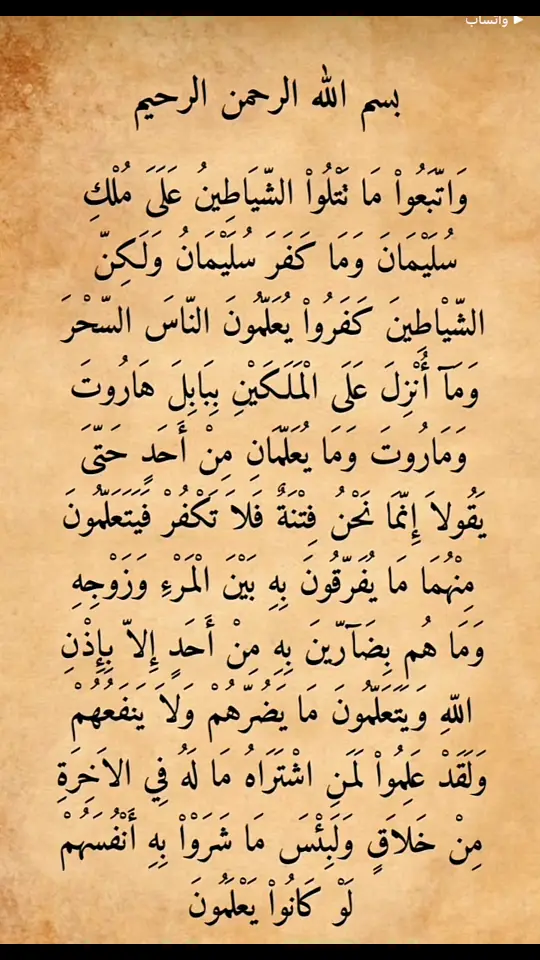 واتساب
بسم الله الرحمن الرحيم
وَاتّبَعُواْ مَا تَتْلُواْ الشّيَاطِينُ عَلَىَ مُلْكِ
سُلَيْمَانَ وَمَا كَفَرَ سُلَيْمَانُ وَلَكِنّ
الشّيْاطِينَ كَفَرُواْ يُعَلّمُونَ النّاسَ السّحْرَ
وَمَآ أُنْزِلَ عَلَى الْمَلَكَيْنِ بِبَابِلَ هَارُوتَ
وَمَارُوتَ وَمَا يُعَلّمَانِ مِنْ أَحَدٍ حَتّىَ
يَقُولاَ إِنّمَا نَحْنُ فِتْنَةٌ فَلاَ تَكْفُرْ فَيَتَعَلّمُونَ
مِنْهُمَا مَا يُفَرّقُونَ بِهِ بَيْنَ الْمَرْءِ وَزَوْجِهِ
وَمَا هُم بِضَآرّينَ بِهِ مِنْ أَحَدٍ إِلاّ بِإِذْنِ
اللّهِ وَيَتَعَلّمُونَ مَا يَضُرّهُمْ وَلاَ يَنفَعُهُمْ
وَلَقَدْ عَلِمُواْ لَمَنِ اشْتَرَاهُ مَا لَهُ فِي الاَخِرَةِ
مِنْ خَلاَقٍ وَلَبِئْسَ مَا شَرَوْاْ بِهِ أَنْفُسَهُمْ
لَوْ كَانُواْ يَعْلَمُونَ